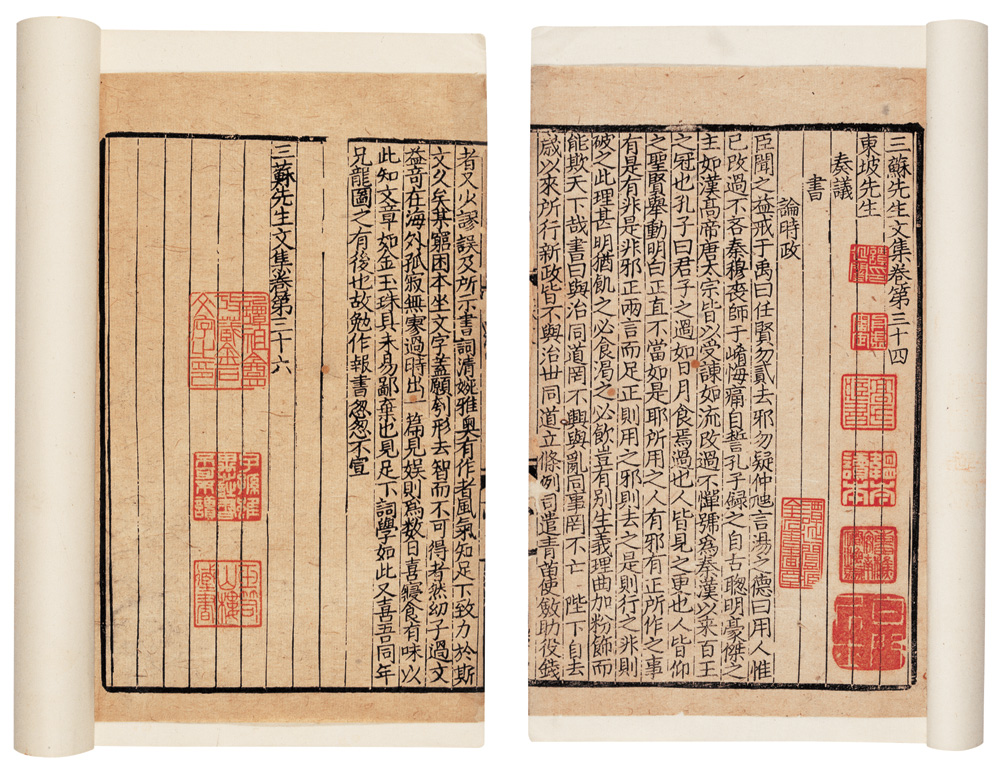 三蘇先生文集卷第三十四
東坡先生
奏議
書
論時政
臣聞之益戒于禹曰任賢勿貳去邪勿疑仲虺言湯之德曰用人惟
已改過不吝秦穆喪師于崤悔痛自誓孔子録之自古聰明豪傑之
主如漢髙帝唐太宗皆以受諫如流改過不憚號為秦漢以来百王
之冠也孔子曰君子之過如日月食焉過也人皆見之更也人皆仰
之聖賢舉動明白正直不當如是耶所用之人有邪有正所作之事
有是有非是非邪正兩言而足正則用之邪則去之是則行之非則
破之此理甚明猶飢之必食渇之必飲豈有别生義理曲加粉飾而
能欺天下哉書曰與治同道罔不興與亂同事罔不亡 陛下自去
歳以來所行新政皆不與治世同道立條例司遣青苗使斂助役錢
者又少謬誤及所示書詞清婉雅奥有作者風氣知足下致力於斯
文久矣某窮困本坐文字盖願刳形去智而不可得者然幼子過文
益奇在海外孤寂無寥過時出一篇見娱則為數日喜寢食有味以
此知文章如金玉珠貝未易鄙棄也見足下詞學如此又喜吾同年
兄龍圖之有後也故勉作報書忽忽不宣
三蘇先生文集卷第三十六